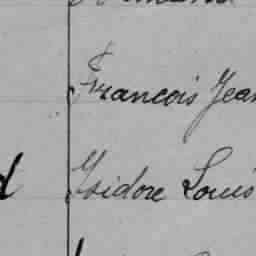 François Jean
d Isidore Louis